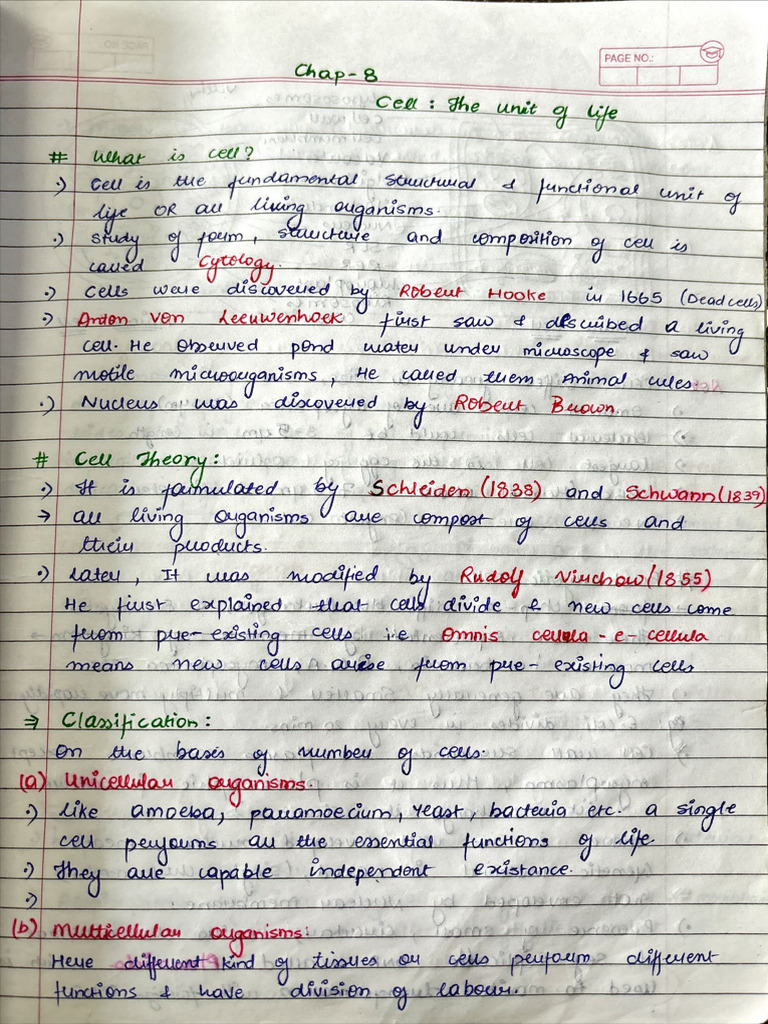 PAGE NO.:
Chap-8
Cell : The unit of life
# What is cell?
·) Cell is the fundamental structural & functional unit of
life OR all living organisms.
·) study of form, structure and composition of cell is
called Cytology.
·) Cells were discovered by Robert Hooke in 1665 (Dead cells)
·) Anton Von Leeuwenhoek first saw & described a living
cell. He observed pond water under microscope & saw
motile microorganisms, He called them Animal cules
·) Nucleus was discovered by Robert Brown.
# Cell Theory:
·) It is formulated by Schleiden (1838) and Schwann (1839)
→ all living organisms are compost of cells and
their products.
·) Later, It was modified by Rudolf Virchow (1855)
He first explained that cells divide & new cells come
from pre-existing cells i.e Omnis cellula-e-cellula
means new cells arise from pre-existing cells
⇒ Classification:
On the basis of number of cells.
(a) Unicellular organisms.
·) Like amoeba, paramoecium, Yeast, bacteria etc. a single
cell performs all the essential functions of life.
·) They are capable independent existance.
·)
(b) Multicellular organisms:
Here different kind of tissues or cells perform different
functions & have division of labour.